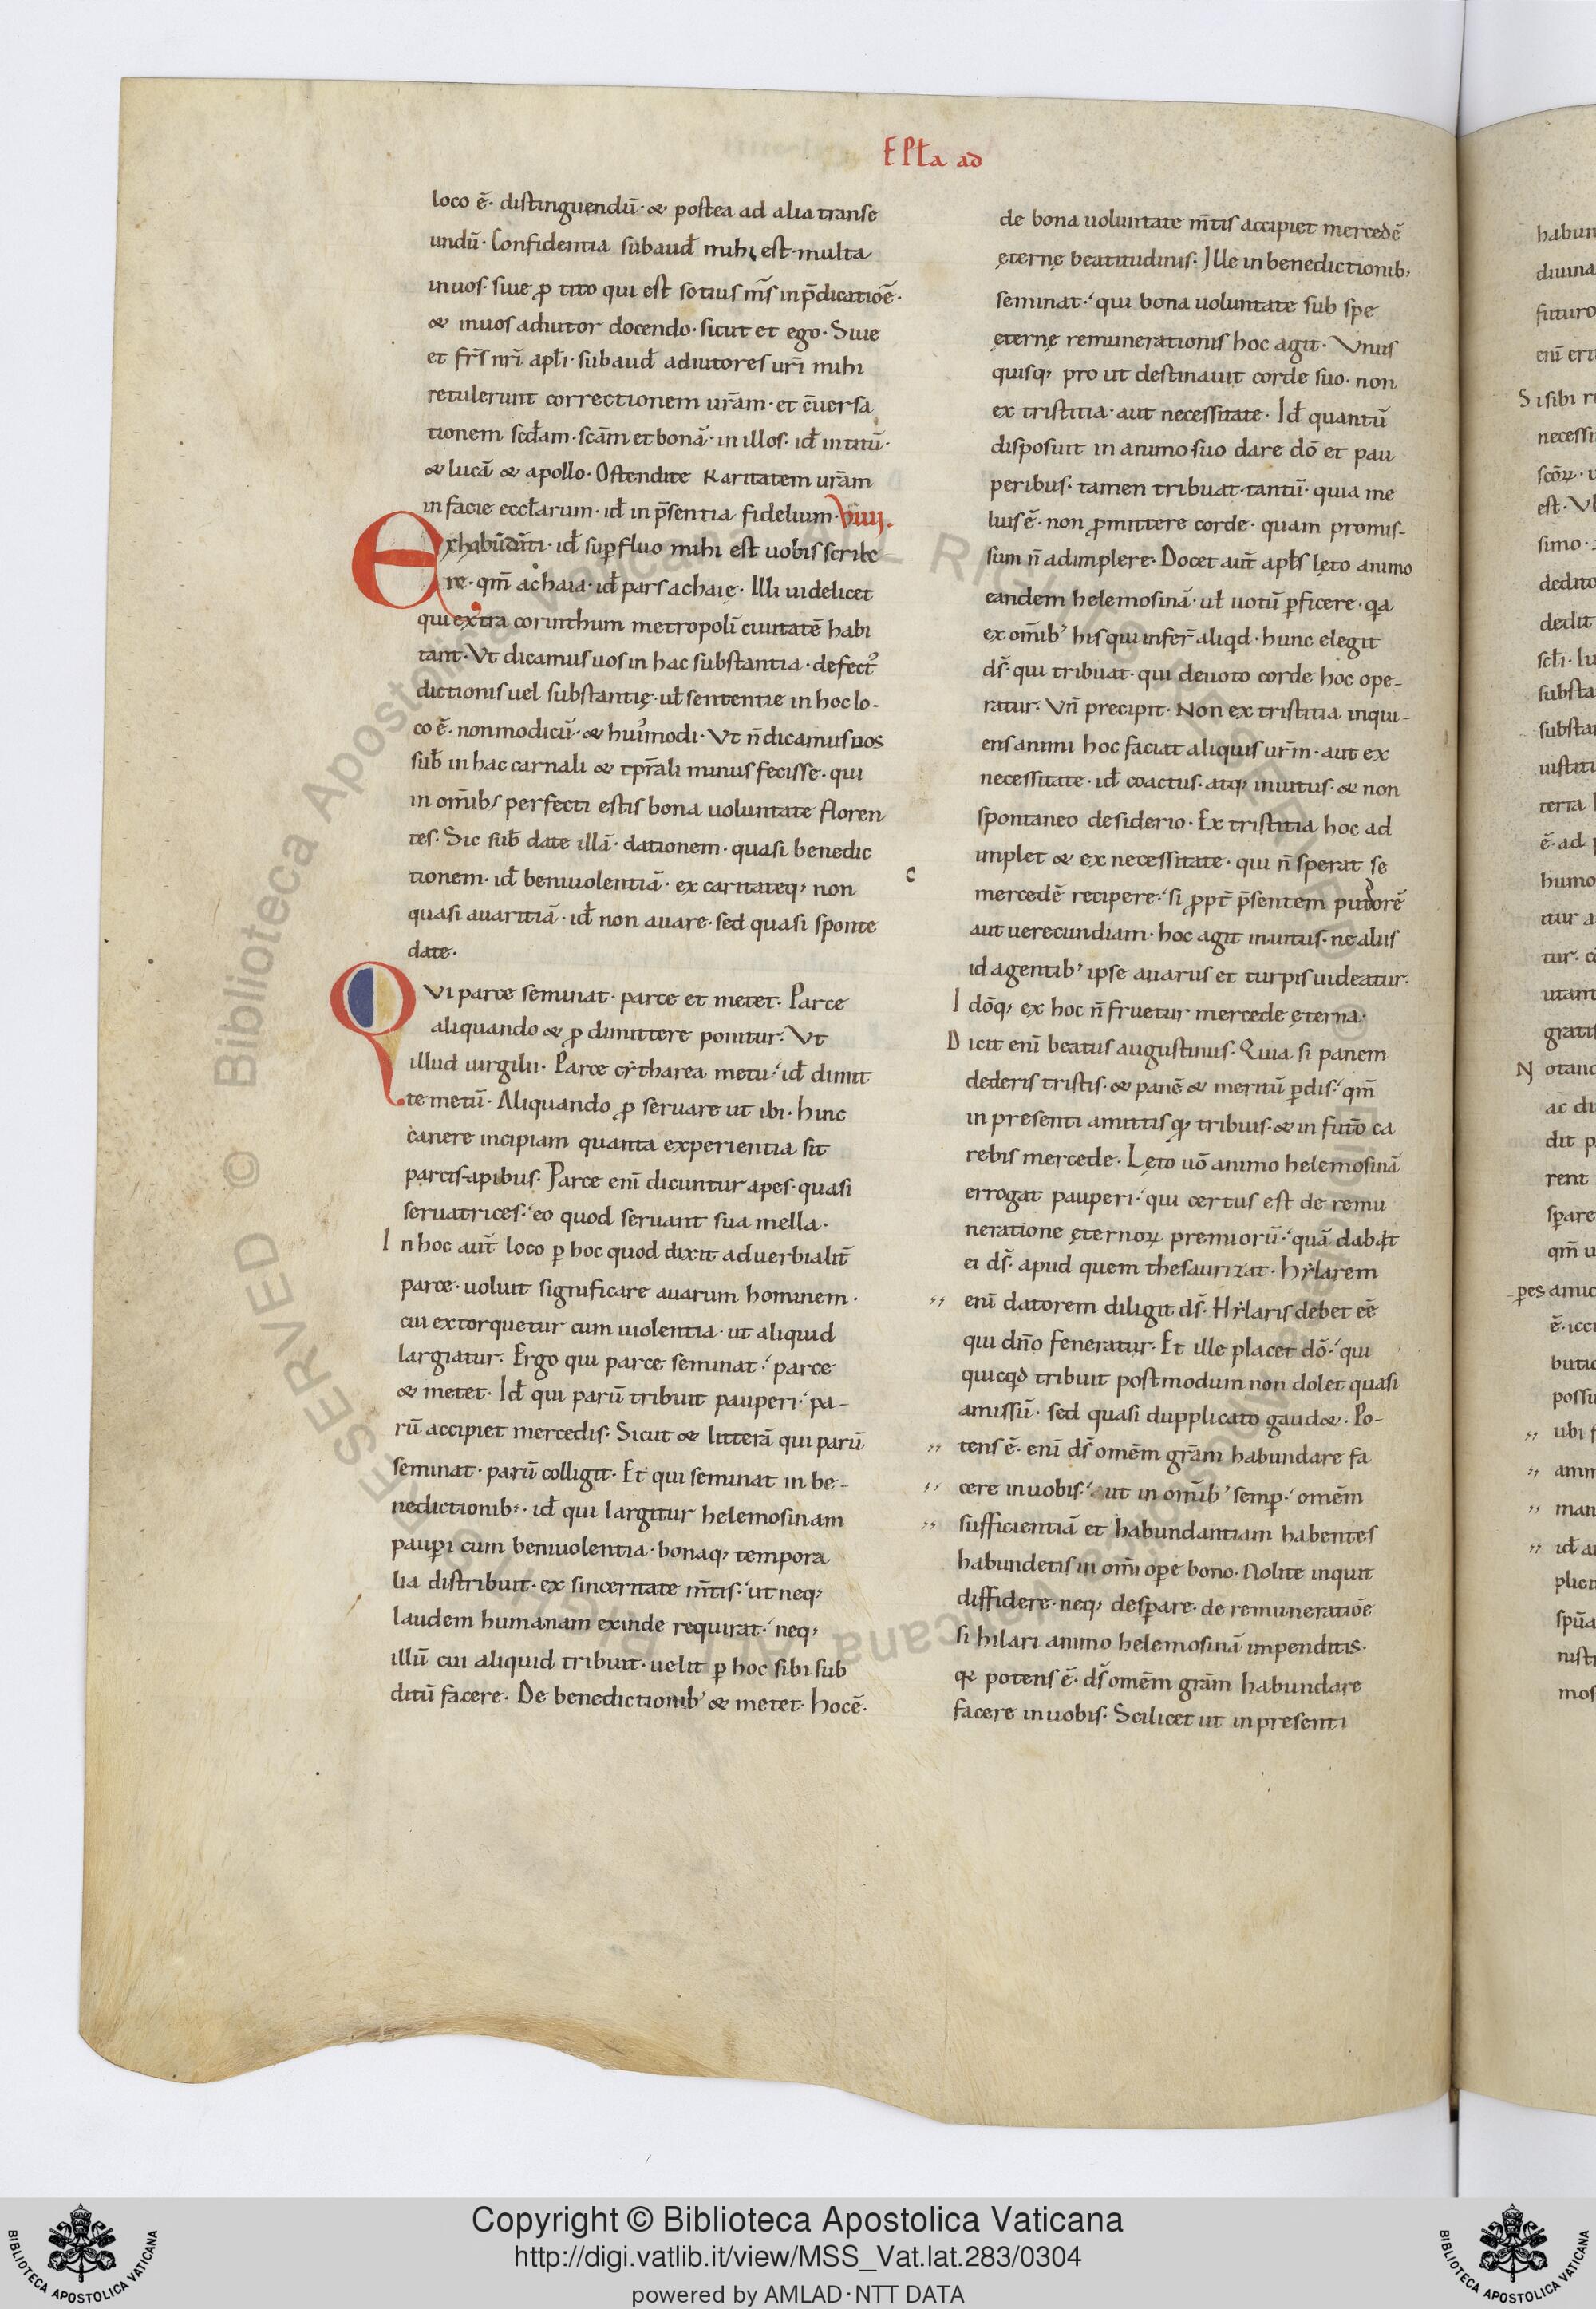 EPLa ad
loco ē· distinguendū· & postea ad alia transe
undū· Confidentia subaud̄ mihi est multa
in uos· siue ꝓ tito qui est sotius m̄s in p̄dicatiōē·
& in uos adiutor docendo· sicut et ego· Siue
et fr̄s nr̄i apl̄i· subaud̄ adiutores ur̄i mihi
retulerunt correctionem ur̄am· et c̄uersa
tionem scd̄am· sc̄am et bonā· in illos· id̄ in titū·
& lucā & apollo· Ostendite karitatem ur̄am
in facie eccl̄arum· id̄ in p̄sentia fidelium· VIIII.
Ex habūdāti· id̄ suꝑfluo mihi est uobis scribe
re· qm̄ achaia· id̄ pars achaię· Illi uidelicet
qui extra corinthum metropolī ciuitatē habi
tant· Vt dicamus uos in hac substantia· defect᷒
dictionis uel substantię· ul̄ sententie in hoc lo-
co ē· non modicū· & hui᷒modi· Vt n̄ dicamus uos
sub̄ in hac carnali & tp̄rali minus fecisse· qui
in om̄ib; perfecti estis bona uoluntate floren
tes· Sic sub̄ date illā· dationem· quasi benedic
tionem· id̄ beniuolentiā· ex caritateq; non
quasi auaritiā· id̄ non auare· sed quasi sponte
date·
QVi parce seminat· parce et metet· Parce
aliquando & ꝓ dimittere ponitur· Vt
illud uirgilii· Parce cẏtharea metu· id̄ dimit
te metū· Aliquando ꝓ seruare ut ibi· hinc
canere incipiam quanta experientia sit
parcis apibus· Parce enī dicuntur apes· quasi
seruatrices· eo quod seruant sua mella·
In hoc aut̄ loco ꝑ hoc quod dixit aduerbialit̄
parce· uoluit significare auarum hominem·
cui extorquetur cum uiolentia· ut aliquid
largiatur· Ergo qui parce seminat· parce
& metet· Id̄ qui parū tribuit pauperi· pa-
rū accipiet mercedis· Sicut & litterā qui parū
seminat· parū colligit· Et qui seminat in be-
nedictionib;· id̄ qui largitur helemosinam
pauꝑi cum beniuolentia· bonaq; tempora
lia distribuit· ex sinceritate m̄tis· ut neq;
laudem humanam exinde requirat· neq;
illū cui aliquid tribuit· uelit ꝑ hoc sibi sub
ditū facere· De benedictionib; & metet· hoc ē·
de bona uoluntate m̄tis accipiet mercedē
ęternę beatitudinis· Ille in benedictionib;
seminat· qui bona uoluntate sub spe
ęternę remunerationis hoc agit· Vnus
quisq; pro ut destinauit corde suo· non
ex tristitia· aut necessitate· Id̄ quantū
disposuit in animo suo dare dō et pau
peribus· tamen tribuat tantū· quia me
lius ē· non ꝓmittere corde· quam promis-
sum n̄ adimplere· Docet aut̄ apl̄s lęto animo
eandem helemosinā· ul̄ uotū ꝑficere· qa
ex om̄ib; his qui infer̄ aliqd· hunc elegit
ds̄· qui tribuat· qui deuoto corde hoc ope-
ratur· Vn̄ precipit· Non ex tristitia inqui-
ens animi hoc faciat aliquis ur̄m· aut ex
necessitate· id̄ coactus· atq; inuitus· & non
spontaneo desiderio· Ex tristitia hoc ad
implet & ex necessitate· qui n̄ sperat se
mercedē recipere· si ꝓpt̄ p̄sentem pudorē
aut uerecundiam· hoc agit inuitus· ne aliis
id agentib; ipse auarus et turpis uideatur·
Idōq; ex hoc n̄ fruetur mercede ęterna·
Dicit enī beatus augustinus· Quia si panem
dederis tristis· & panē & meritū ꝑdis· qm̄
in presenti amittis qꝫ tribuis· & in fut̄o ca
rebis mercede· Lęto uō animo helemosinā
errogat pauperi· qui certus est de remu
neratione ęternoꝝ premiorū· quā dabit
ei ds̄· apud quem thesaurizat· Hẏlarem
enī datorem diligit ds̄· Hẏlaris debet eē
qui dn̄o feneratur· Et ille placet dō· qui
quicqd tribuit postmodum non dolet quasi
amissū· sed quasi dupplicato gaud&· Po-
tens ē· enī ds̄ omēm gr̄am habundare fa
cere in uobis· ut in om̄ib; semp· omēm
sufficientiā et habundantiam habentes
habundetis in om̄i oꝑe bono· Nolite inquit
diffidere· neq; desꝑare· de remuneratiōe
si hilari animo helemosinā impenditis·
qꝛ potens ē· ds̄ omēm gr̄am habundare
facere in uobis· Scilicet ut in presenti
Copyright © Biblioteca Apostolica Vaticana
http://digi.vatlib.it/view/MSS_Vat.lat.283/0304
powered by AMLAD·NTT DATA